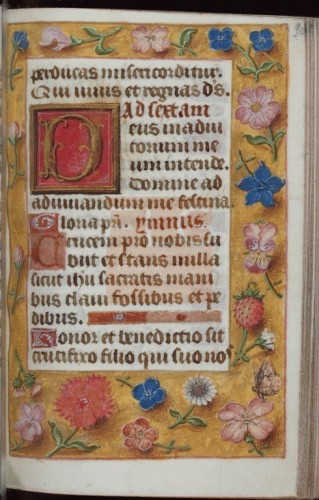 perducas misericorditur.
Qui uiuis et regnas ds.
Ad sextam
Deus in adiu
torium me
um intende.
Domine ad
adiuuandum me festina.
Gloria pri. ymnus.
Crucem pro nobis su
biit et stans in illa
sicut ihus sacratis mani
bus clauis fossibus et pe
dibus.
Honor et benedictio sit
crucifixo filio qui suo nos